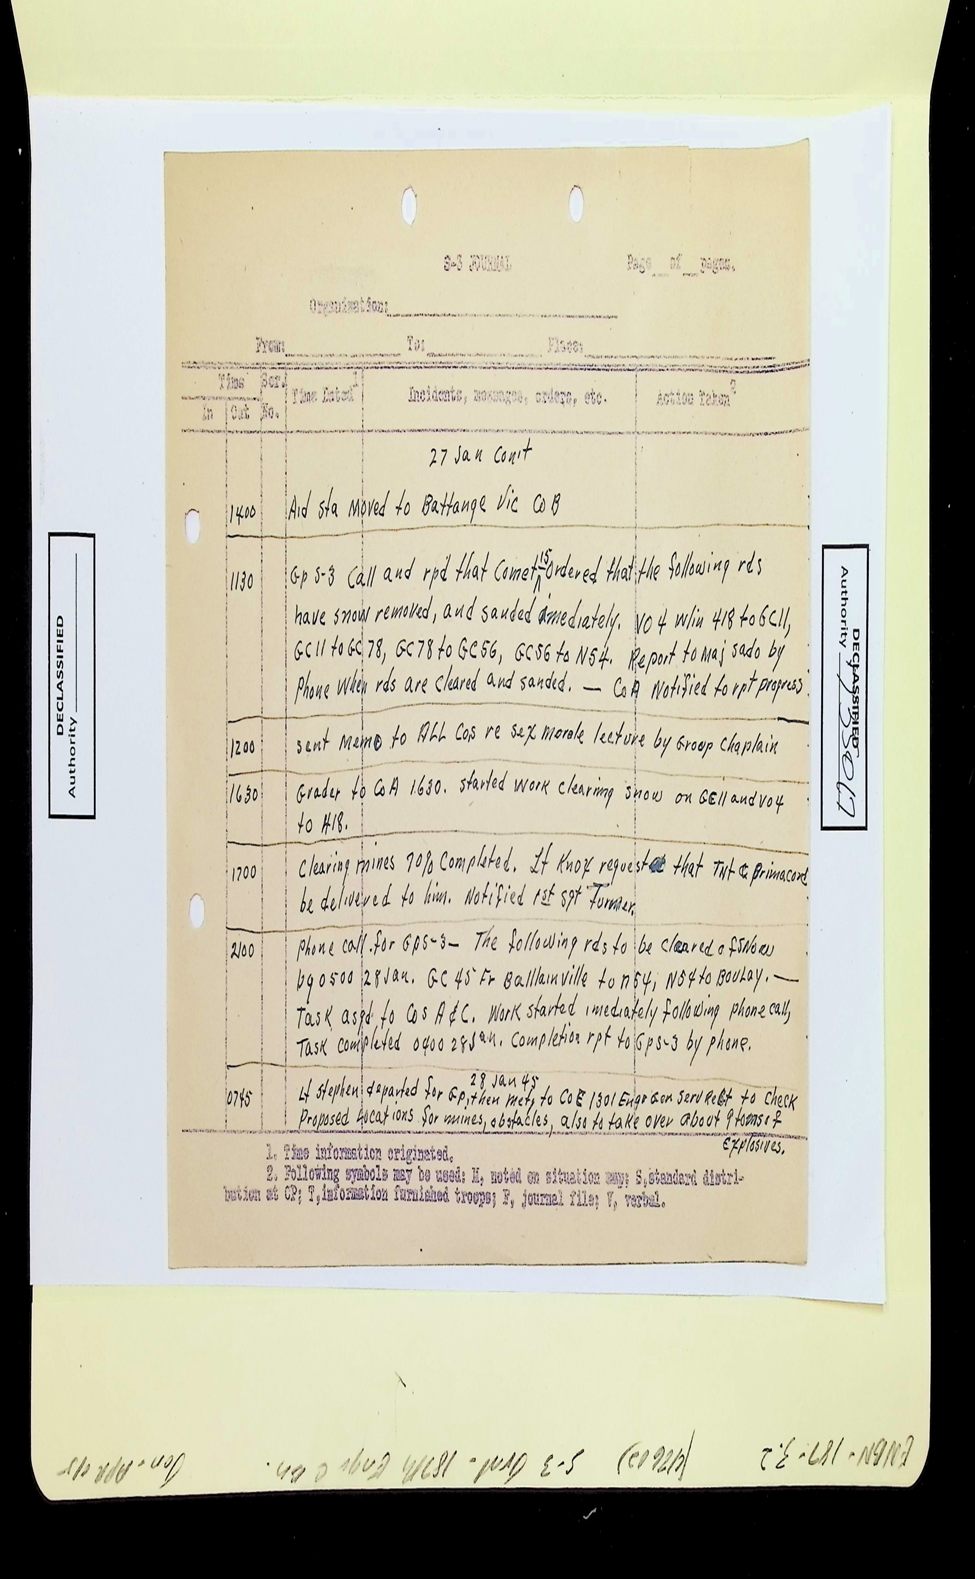 S-3 JOURNAL Page __ of __ pages.
Organization:
From: To: Place:
Time Ser. Time Dated 1 Incidents, messages, orders, etc. Action Taken 2
In Out No.
27 Jan Cont
1400 Aid sta moved to Battange Vic Co B
1130 Gp S-3 Call and rpd that Comet 15 ordered that the following rds
have snow removed, and sanded imediately. VO4 w/in 418 to GC11,
GC11 to GC78, GC78 to GC56, GC56 to N54. Report to Maj Sado by
Phone when rds are cleared and sanded. — Co A Notified to rpt progress
1200 sent Memo to ALL Cos re sex morale lecture by Group Chaplain
1630 Grader to Co A 1630. started work clearing snow on GC11 and VO4
to A18.
1700 Clearing mines 70% Completed. Lt Knox requested that TNT & Primacord
be delivered to him. Notified 1st Sgt Turner.
2100 Phone call for Gp S-3 — The following rds to be cleared of snow
by 0500 28 Jan. GC 45 Fr Balllainville to N54, N54 to Boulay. —
Task asgd to Cos A & C. Work started imediately following phone call,
Task completed 0400 28 Jan. Completion rpt to Gp S-3 by phone.
28 Jan 45
0745 Lt Stephen departed for Gp, then Metz to Co E 1301 Engr Gen Serv Regt to check
Proposed Locations for mines, obstacles, also to take over about 9 tons of
Explosives.
1. Time information originated.
2. Following symbols may be used: M, noted on situation map; S, standard distri-
bution at CP; T, information furnished troops; F, journal file; V, verbal.
DECLASSIFIED
Authority
DECLASSIFIED
Authority
ENBN-187-3.2 (47602) S-3 Jrnl - 187th Engr C Bn. Jan-Apr 45